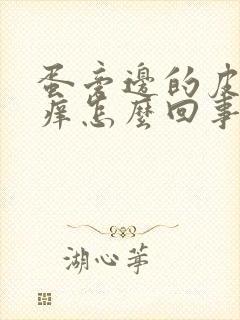 蛋旁邊的皮
痒怎麼回事
湖心茅